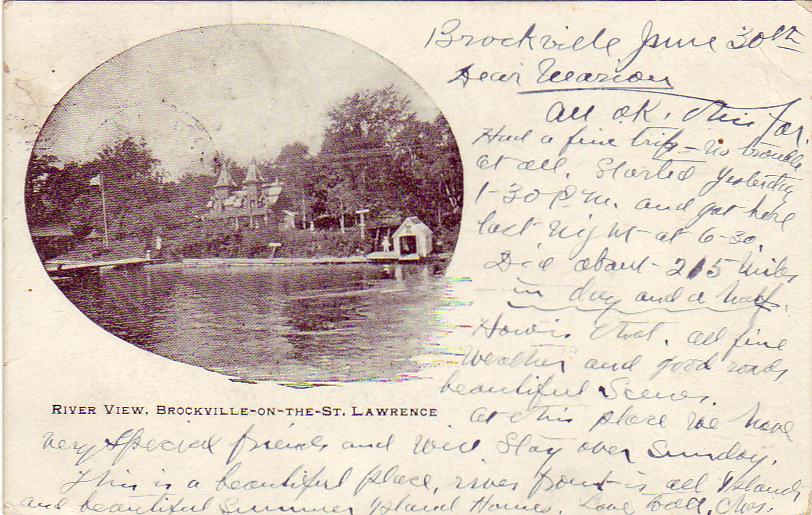 Brockville June 30th
Dear Marion
All O.K. this far.
Had a fine trip - no trouble
at all. Started yesterday
1-30 P.M. and got here
last night at 6-30.
Did about 215 miles
in day and a half.
How is that. all fine
weather and good roads
beautiful Scenes.
RIVER VIEW, BROCKVILLE-ON-THE-ST. LAWRENCE
At this place we have
very special friends and will stay over Sunday.
This is a beautiful place, river front is all Islands
and beautiful Summer Island Homes. Love to all, Chas.